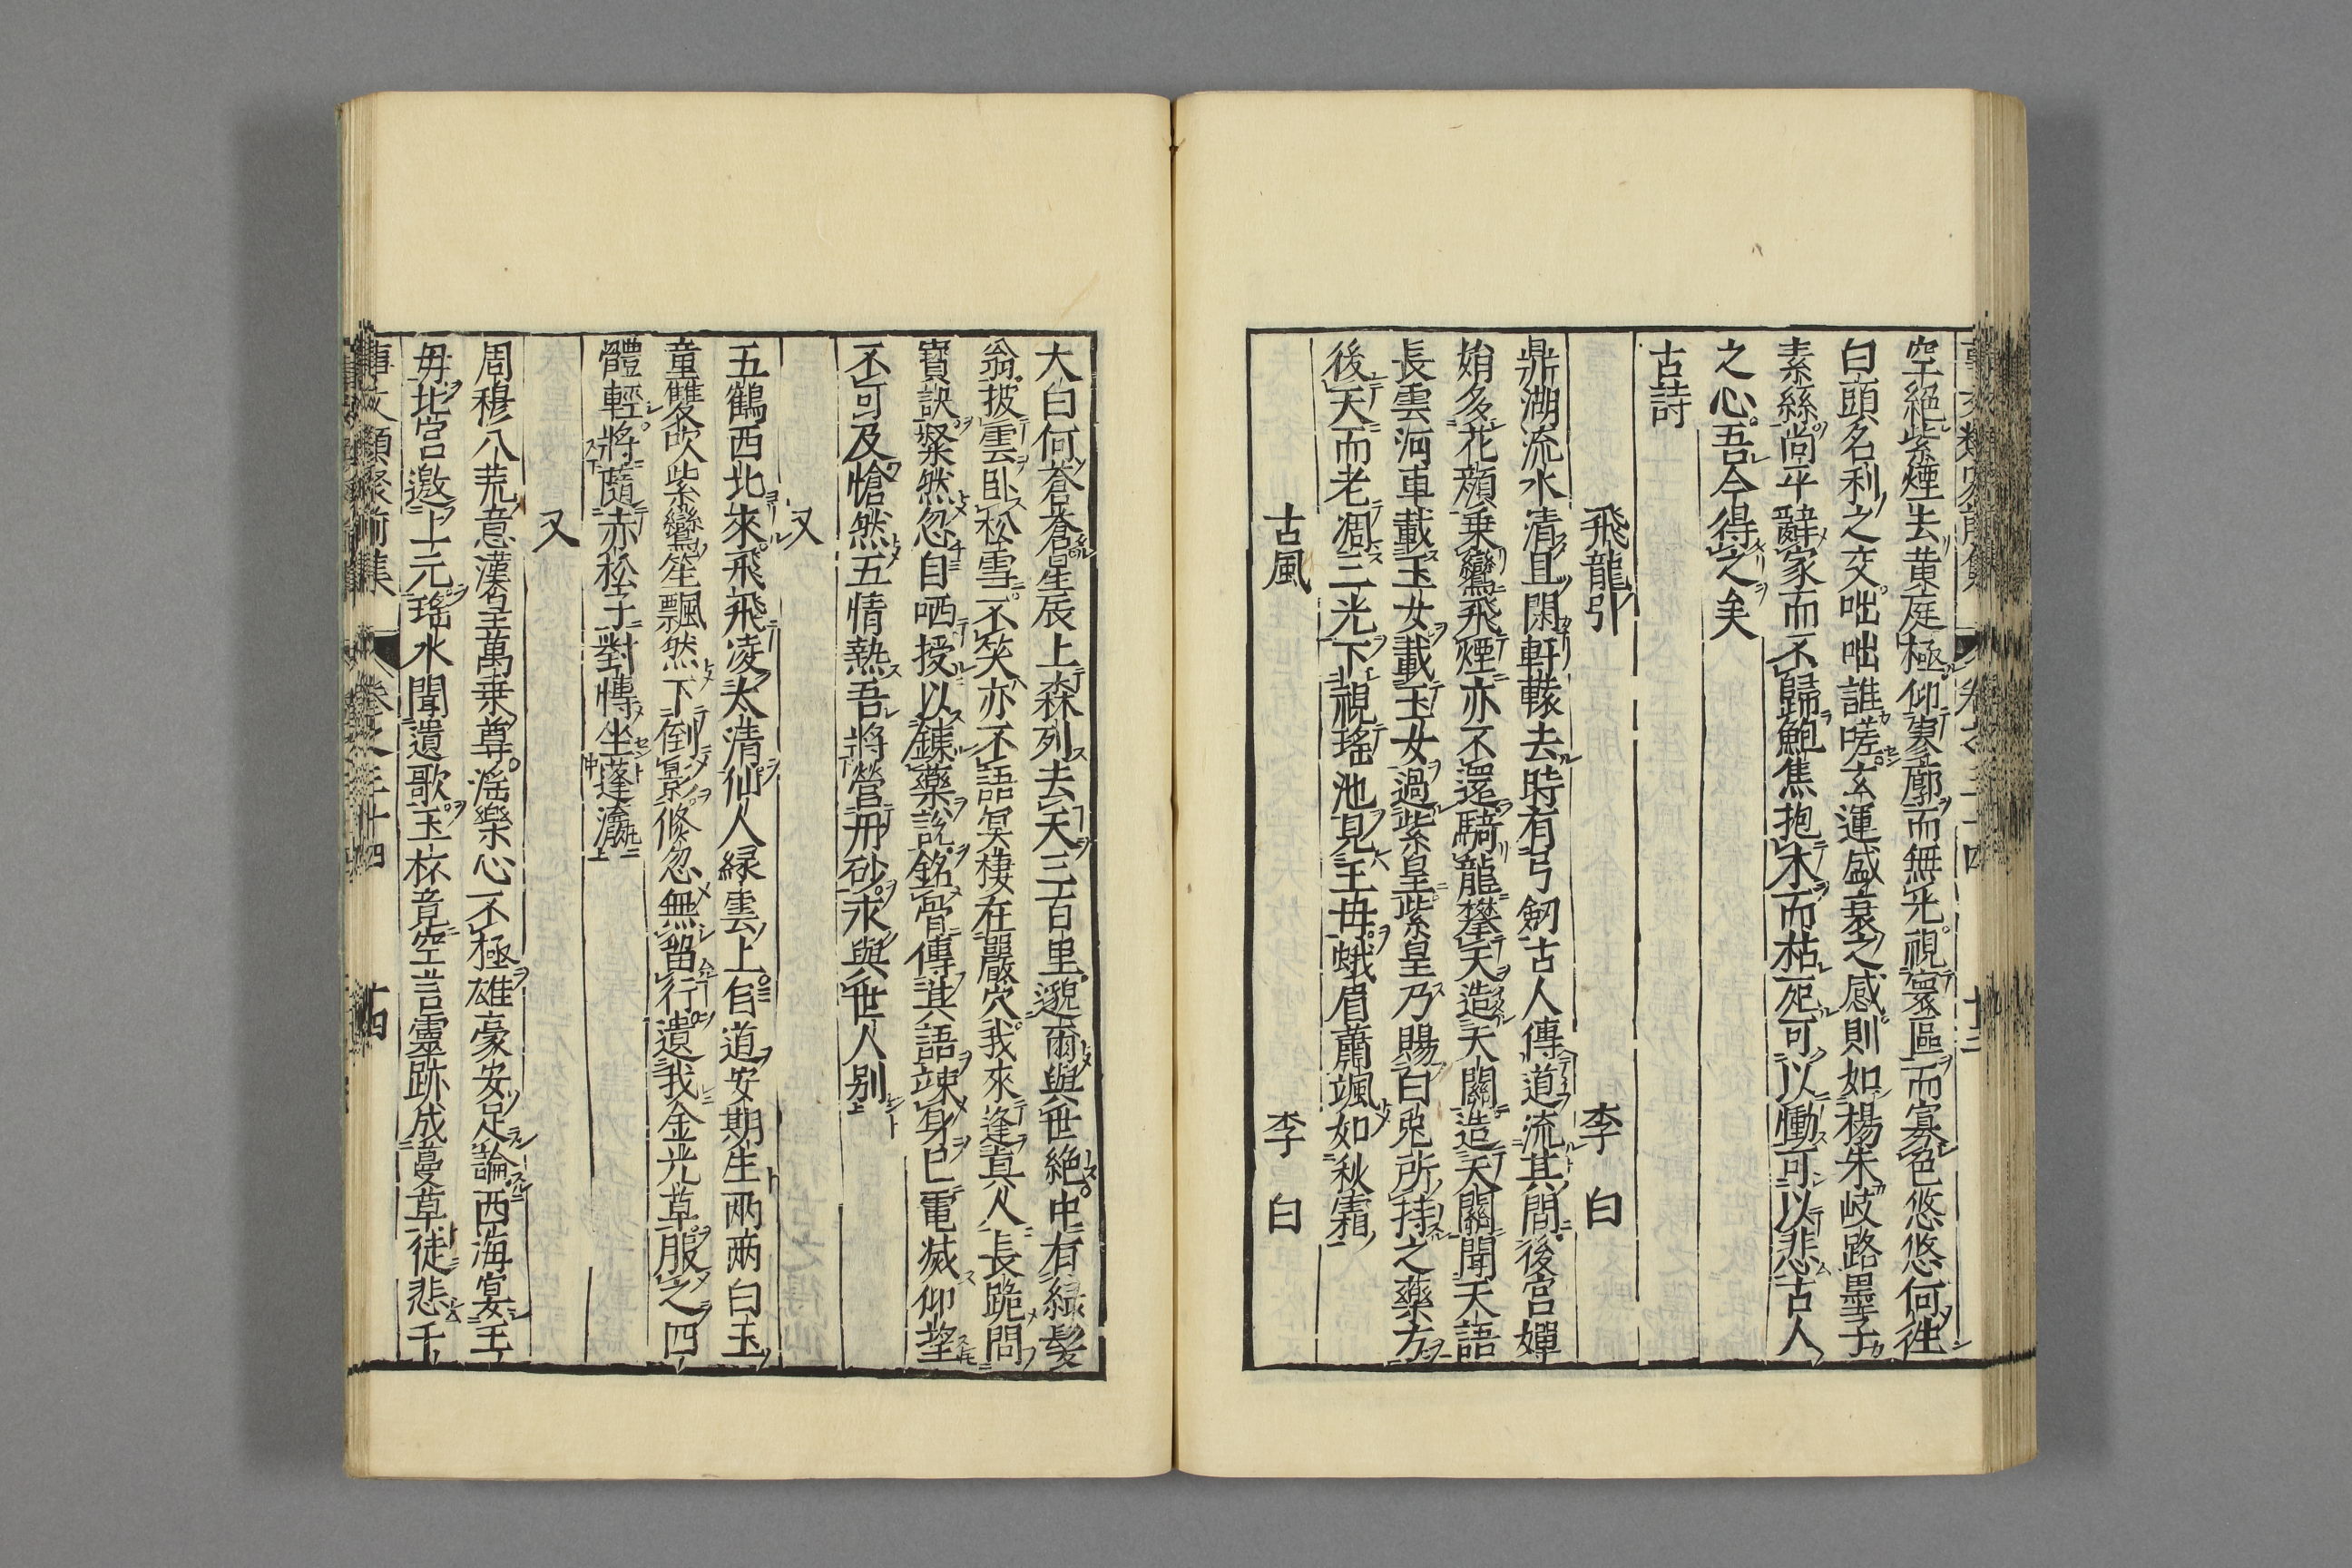 空絶紫煙去黄庭極仰寥廓而無光視寰區而寡色悠悠何往
白頭名利之交咄咄誰嗟玄運盛衰之感則如楊朱岐路墨子
素絲尚平辭家而不歸鮑焦抱木而枯死可以慟可以悲古人
之心吾今得之矣
古詩
飛龍引 李白
鼎湖流水清且閑軒轅去時有弓劒古人傳道流其間後宮嬋
娟多花顔乗鸞飛煙亦不還騎龍攀天造天關造天關聞天語
長雲河車載玉女載玉女過紫皇紫皇乃賜白兎所持之藥方
後天而老凋三光下視瑤池見王母蛾眉蕭颯如秋霜
古風 李白
大白何蒼蒼星辰上森列去天三百里邈爾與世絶中有緑髪
翁披雲卧松雪不笑亦不語冥棲在巖穴我來逢真人長跪問
寳訣粲然忽自哂授以錬藥說銘骨傳其語竦身已電滅仰望
不可及愴然五情熱吾將營丹砂永與世人别
又
五鶴西北來飛飛凌太清仙人緑雲上自道安期生两两白玉
童雙吹紫鸞笙飄然下倒影倐忽無留行遺我金光草服之四
體輕將隨赤松子對博坐蓬瀛
又
周穆八荒意漢皇萬乗尊滛樂心不極雄豪安足論西海宴王
母北宮邀上元瑤水聞遺歌玉杯竟空言靈跡成蔓草徒悲千
事文類聚前集 卷之三十四